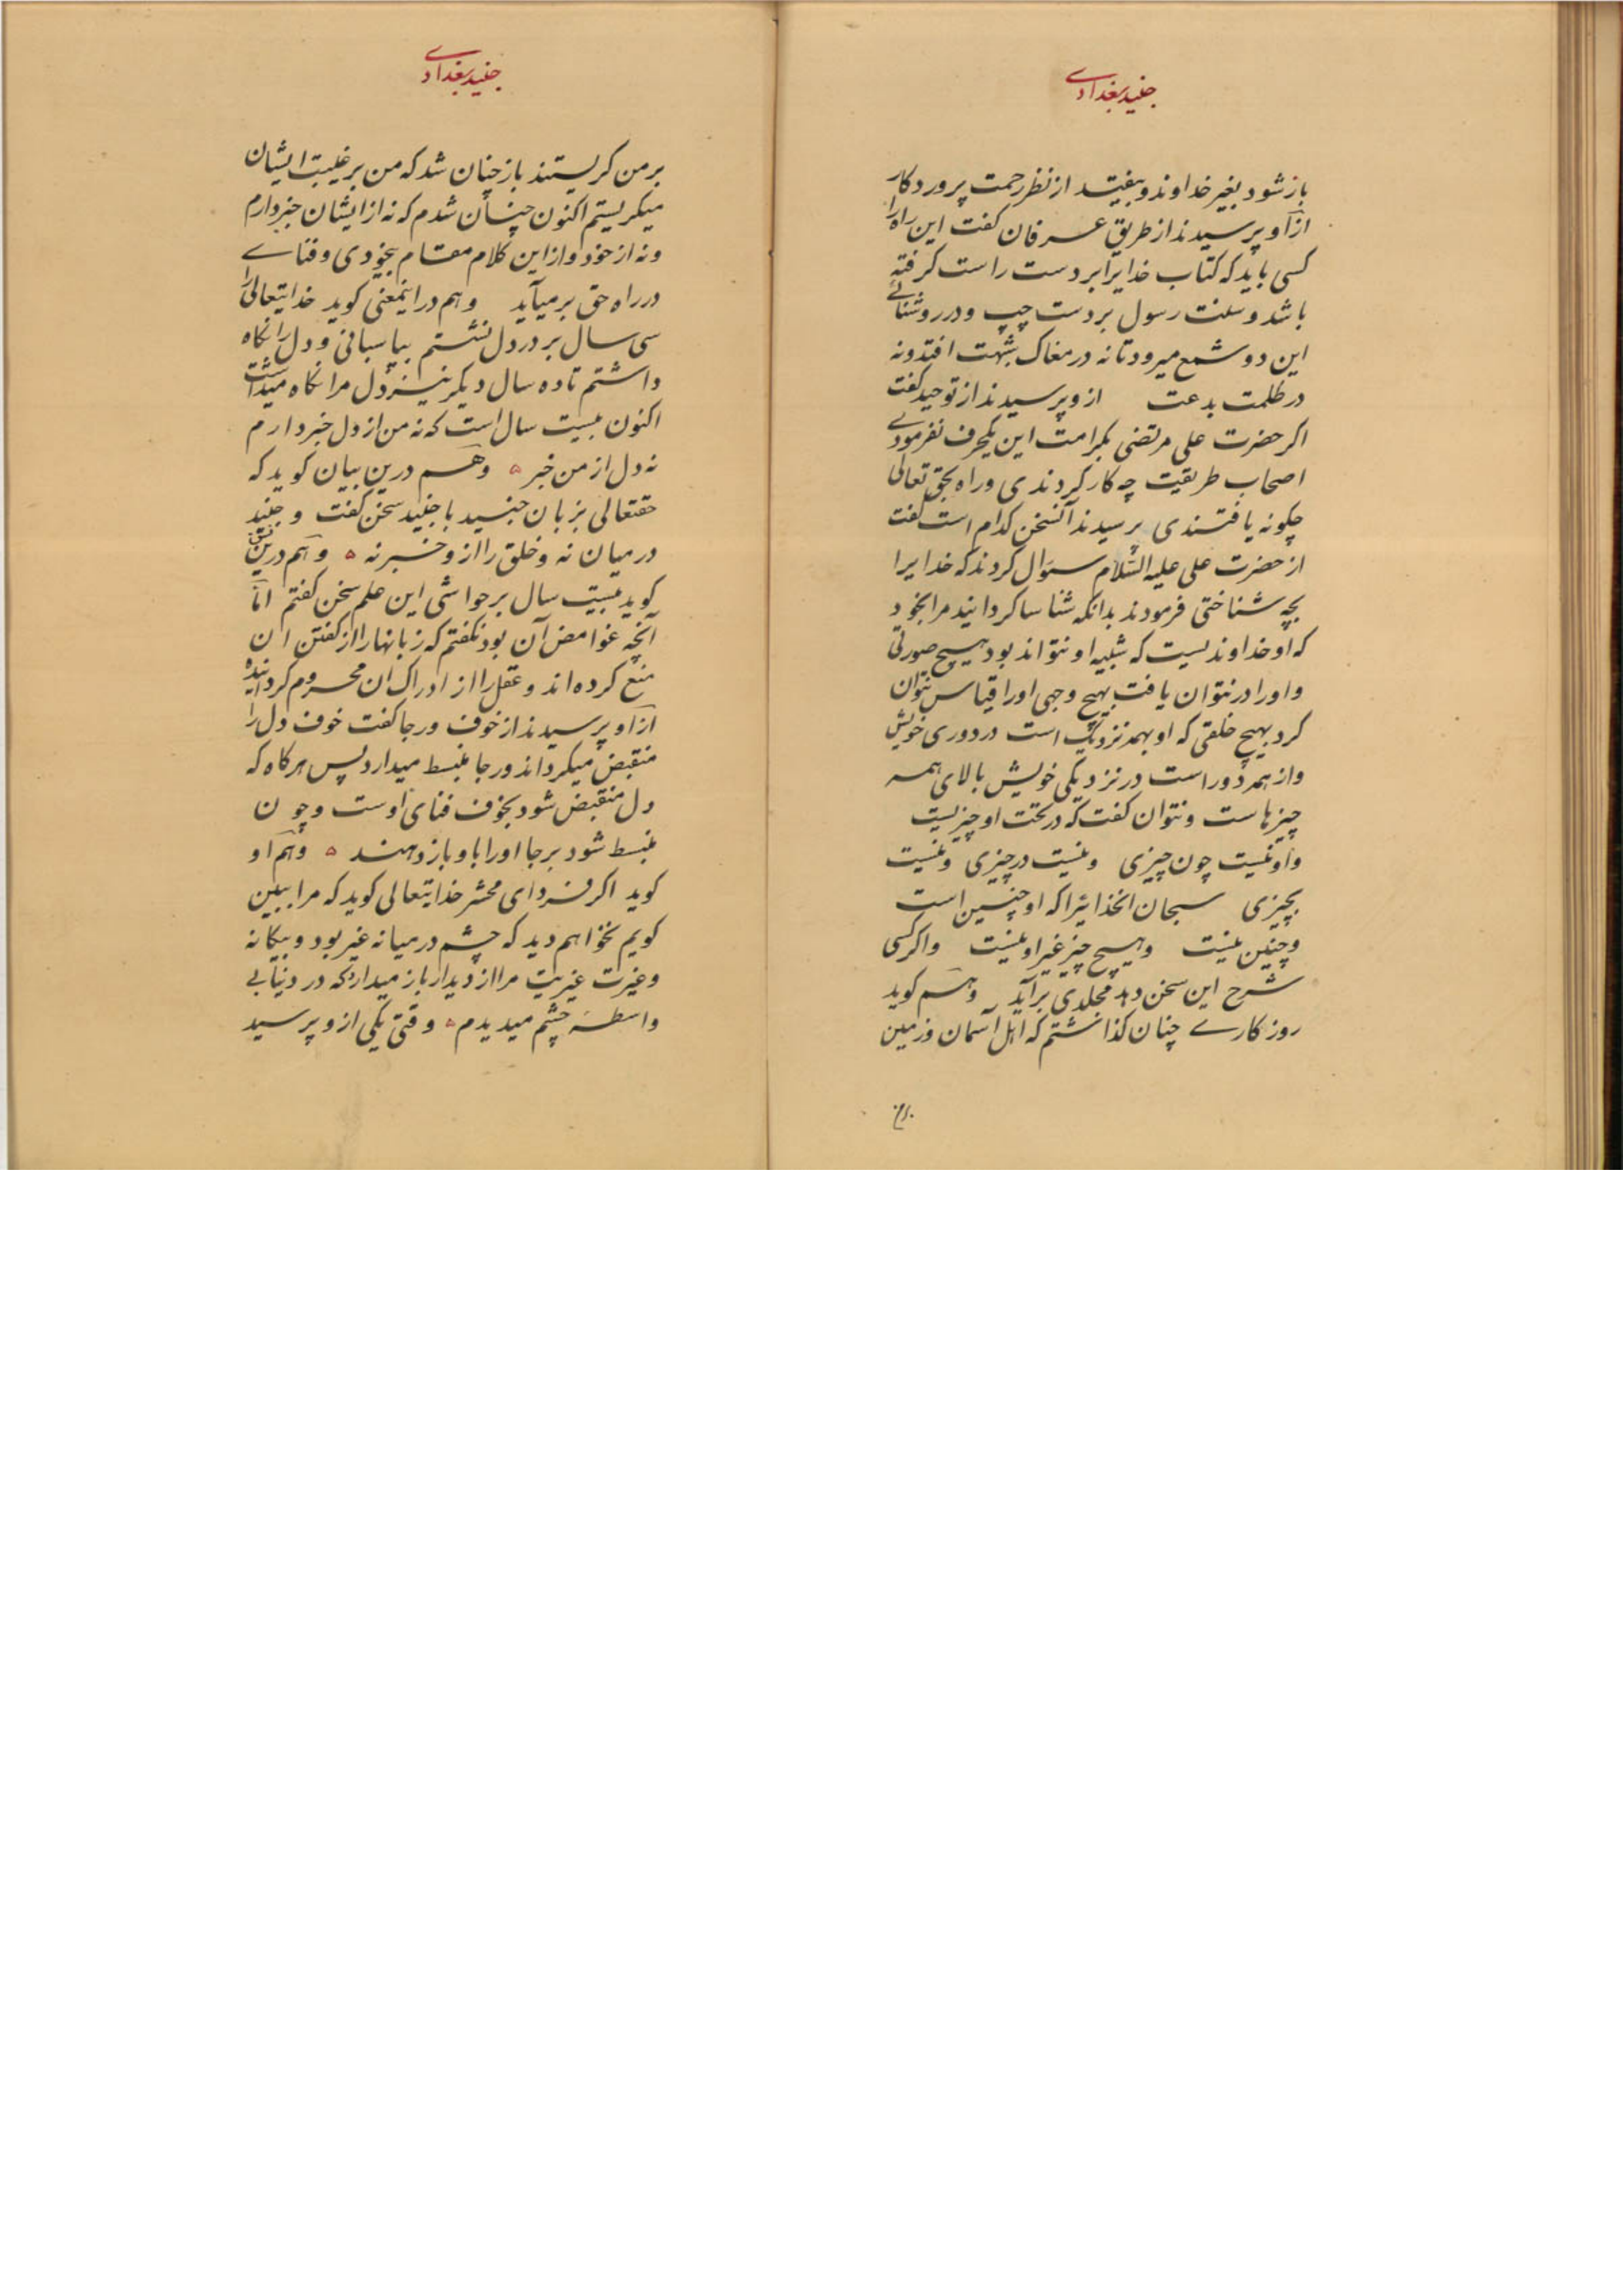 جنید بغدادے
باز شود بغیر خداوند و بیفتد از نظر رحمت پروردکار
ازآو پرسیدند از طریق عرفان کفت این راه را
کسی باید که کتاب خدایرا بر دست راست کرفته
باشد و سنت رسول بر دست چپ و در روشنائے
این دو شمع میرود تا نه در مغاک شبهت افتد و نه
در ظلمت بدعت ازو پرسیدند از توحید کفت
اکر حضرت علی مرتضی بکرامت این یکحرف نفرمودے
اصحاب طریقت چه کار کردندی و راه بحق تعالی
چکونه یافتندی پرسیدند آنسخن کدام است کفت
از حضرت علی علیه السّلام سؤال کردند که خدایرا
بچه شناختی فرمودند بدانکه شناسا کردانید مرا بخود
که او خداوندیست که شبیه او نتواند بود هیچ صورتی
و او را در نتوان یافت بهیچ وجهی او را قیاس نتوان
کرد بهیچ خلقی که او بهمه نزدیک است در دوری خویش
و از همه دور است در نزدیکی خویش بالای همه
چیزهاست و نتوان کفت که در تحت او چیزیست
و او نیست چون چیزی و نیست در چیزی و نیست
بچیزی سبحان انخدائیرا که او چنین است
و چنین نیست و هیچ چیز غیر او نیست و اکر کسی
شرح این سخن دهد مجلدی برآید و هم کوید
روزکارے چنان کذاشتم که اهل آسمان و زمین
بر من
جنید بغدادے
بر من کریستند باز چنان شد که من بر غیبت ایشان
میکریستم اکنون چنان شدم که نه از ایشان خبر دارم
و نه از خود و از این کلام مقام بیخودی و فناے
در راه حق برمیآید و هم در اینمعنی کوید خدایتعالی را
سی سال بر در دل نشستم بپاسبانی و دل را نکاه
داشتم تا ده سال دیکر نیز دل مرا نکاه میداشت
اکنون بیست سال است که نه من از دل خبر دارم
نه دل از من خبر ه و هم درین بیان کوید که
حقتعالی بزبان جنید با جنید سخن کفت و جنید
در میان نه و خلق را از و خبر نه ه و هم درین
کوید بیست سال بر حواشی این علم سخن کفتم امّا
آنچه غوامض آن بود نکفتم که زبانها را از کفتن ان
منع کرده‌اند و عقل را از ادراک ان محروم کردانیده
ازآو پرسیدند از خوف و رجا کفت خوف دل را
منقبض میکرداند و رجا منبسط میدارد پس هرکاه که
دل منقبض شود بخوف فنای اوست و چون
منبسط شود برجا او را باو باز دهند ه و هم او
کوید اکر فردای محشر خدایتعالی کوید که مرا ببین
کویم نخواهم دید که چشم در میانه غیر بود و بیکانه
و غیرت غیریت مرا از دیدار باز میدارد که در دنیا بے
واسطهٔ چشم میدیدم ه وقتی یکی ازو پرسید